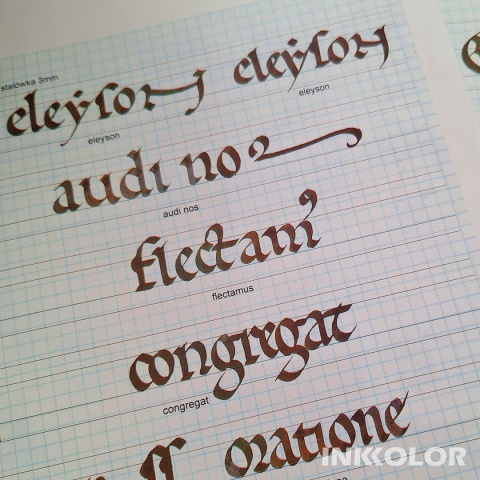 stalówka 3mm
eleyson eleyson
eleyson eleyson
audi no
audi nos
flectam
flectamus
congregat
congregat
oratione
INKKOLOR